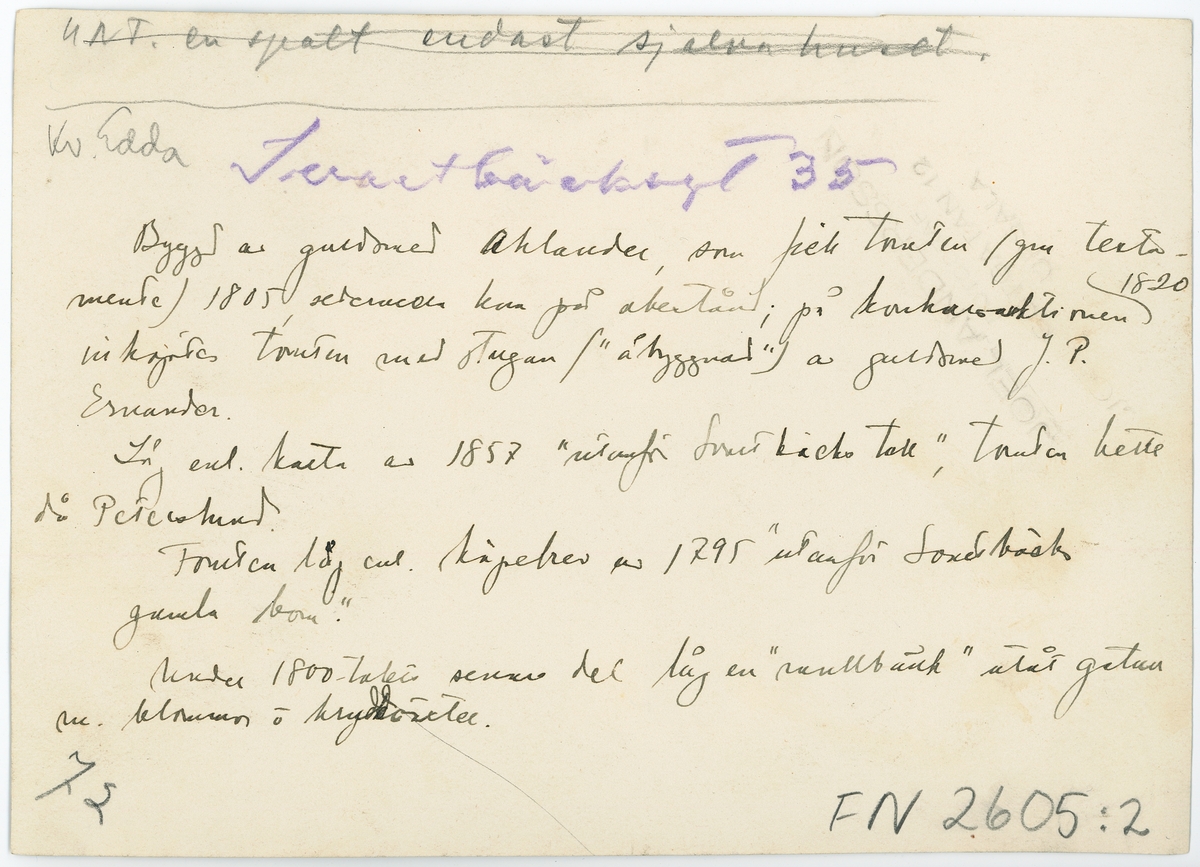 UNT. en spalt endast själva huset.
Kv. Edda
Svartbäcksgt 35
Byggd av guldsmed Ahlander, som fick tomten (gm testa-
mente) 1805, sedermera kom på obestånd; på konkursauktionen 1820
inköptes tomten med stugan ("åbyggnad") av guldsmed J. P.
Ernander.
Låg enl. karta av 1857 "utanför Svartbäcks tull", tomten hette
då Peterslund.
Tomten låg enl. köpebrev av 1795 "utanför Svartbäcks
gamla bom".
Under 1800-talets senare del låg en "mullbänk" utåt gatan
m. blommor o kryddväxter.
FN 2605:2